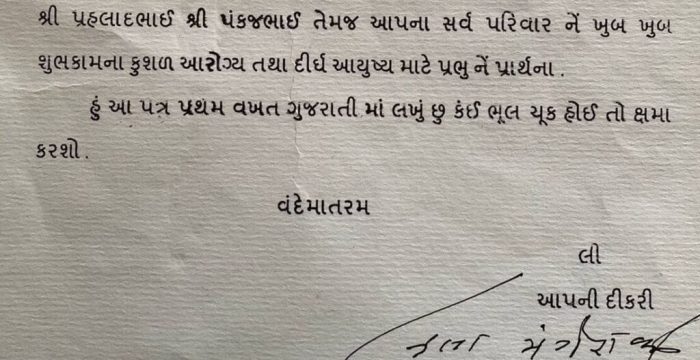 શ્રી પ્રહલાદભાઈ શ્રી પંકજભાઈ તેમજ આપના સર્વ પરિવાર નેં ખુબ ખુબ
શુભકામના કુશળ આરોગ્ય તથા દીર્ઘ આયુષ્ય માટે પ્રભુ નેં પ્રાર્થના.
હું આ પત્ર પ્રથમ વખત ગુજરાતી માં લખું છુ કંઈ ભૂલ ચૂક હોઈ તો ક્ષમા
કરશો.
વંદેમાતરમ
લી
આપની દીકરી